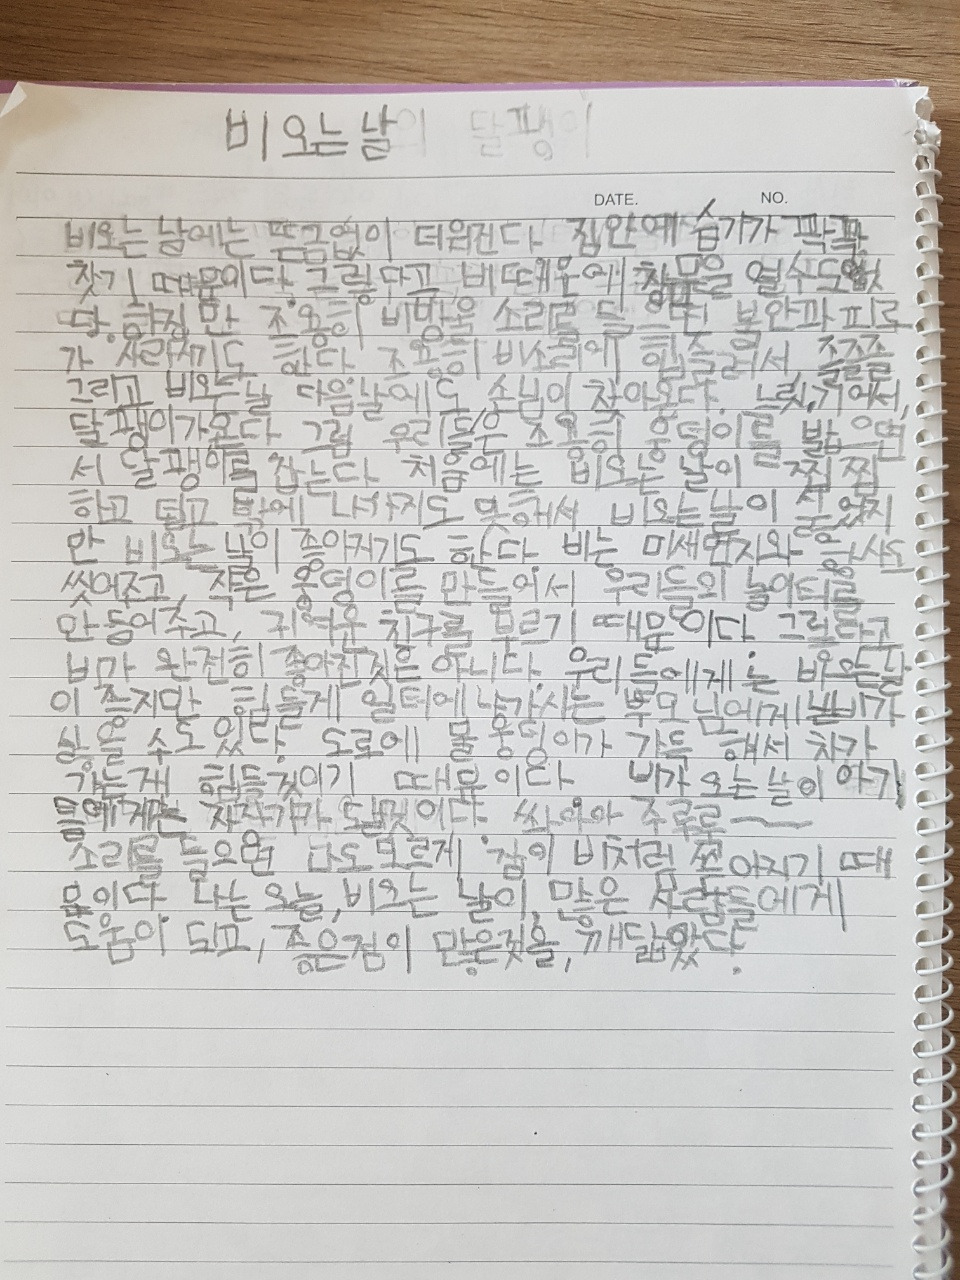 비오는날의 달팽이
DATE. NO.
비오는 날에는 뜬금없이 더워진다 집안에 습기가 꽉꽉
찻기 때문이다 그렇다고 비때문에 창문을 열수도없
다. 하지만 조용히 비방울 소리를 들으면 불안과 피로
가 사라지기도 한다 조용히 비소리에 힘 줄줄줄
그리고 비오는날 다음날에도 손님이 찾아온다. 느릿,기어서,
달팽이가온다 그럼 우리들은 조용히 웅덩이를 밟으면
서 달팽이를 잡는다 처음에는 비오는 날이 찝찝
하고 덥고 밖에 나가지도 못해서 비오는날이 싫었지
만 비오는 날이 좋아지기도 한다 비는 미세먼지와 황사도
씻어주고, 작은 웅덩이를 만들어서 우리들의 놀이터를
만들어주고, 귀여운 친구를 부르기 때문이다 그렇라고
비가 완전히 좋아진것은 아니다. 우리들에게는 비오는날
이 좋지만 힘들게 일터에 나가시는 부모님에게는비가
싫을 수도 있다. 도로에 물 웅덩이가 가득 해서 차가
가는게 힘들것이기 때문이다 비가 오는 날이 아기
들에게는 자장가가 될것이다 쏴아아 주루르~
소리를 들으면 나도모르게 잠이 비처럼 쏟아지기 때
문이다 나는 오늘, 비오는 날이, 많은 사람들에게
도움이 되고, 좋은점이 많은것을, 깨닳았다.